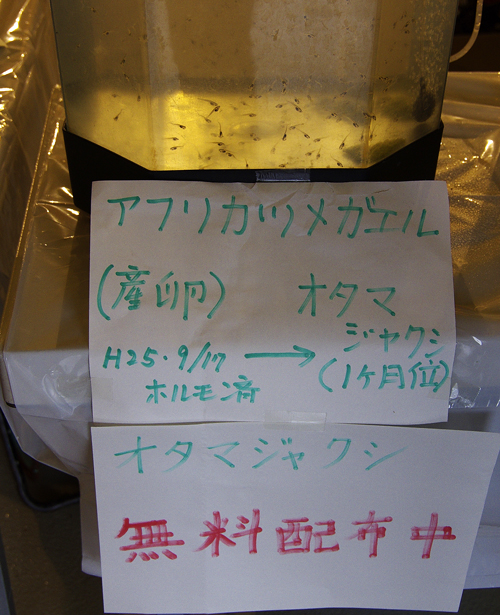 アフリカツメガエル
(産卵) オタマ
ジャクシ
H25.9/17 → (1ヶ月位)
ホルモン済
オタマジャクシ
無料配布中